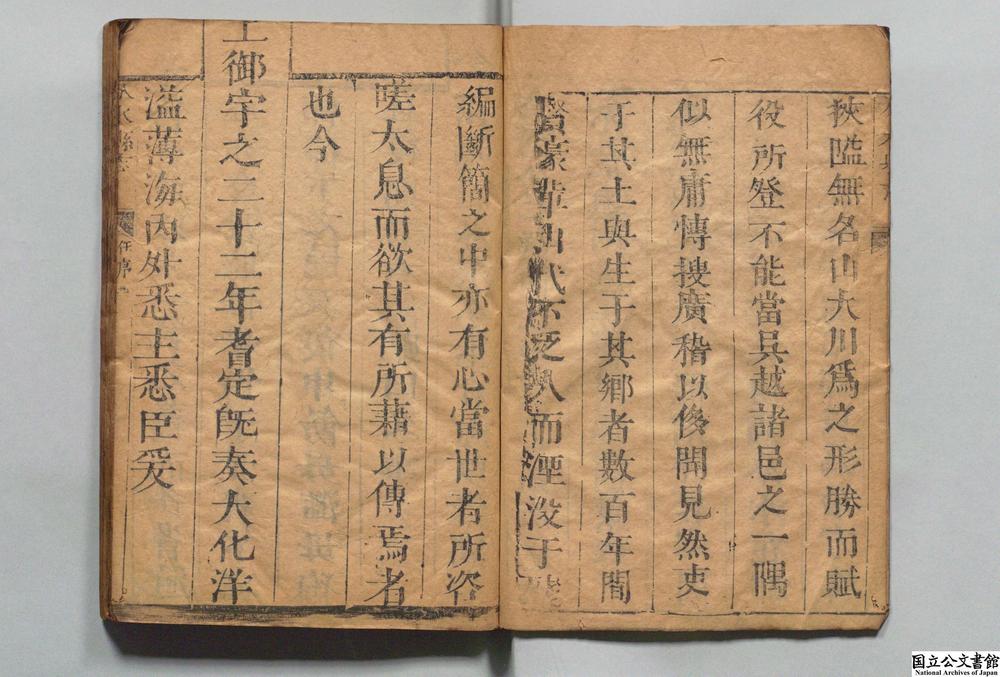 狹隘無名山大川爲之形勝而賦
役所登不能當吳越諸邑之一隅
似無庸慱搜廣稽以後聞見然吏
于其土與生于其鄉者數百年間
賢豪輩出代不乏人而湮没于殘
編斷簡之中亦有心當世者所咨
嗟太息而欲其有所藉以傳焉者
也今
上御宇之二十二年耆定旣奏大化洋
溢薄海內外悉主悉臣爰
任序
国立公文書館
National Archives of Japan